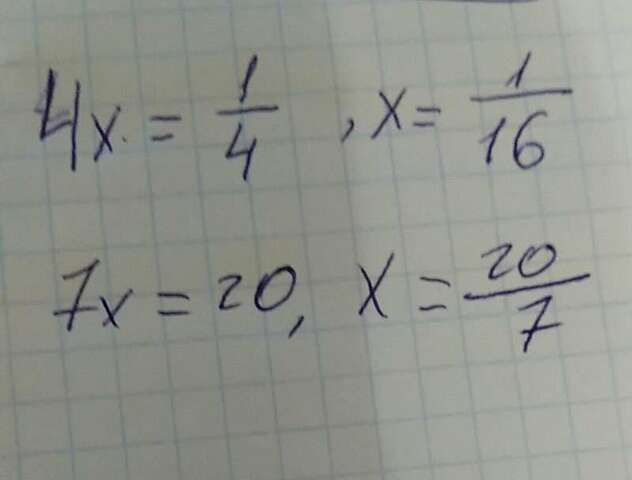 4x = 1/4, x = 1/16
7x = 20, x = 20/7